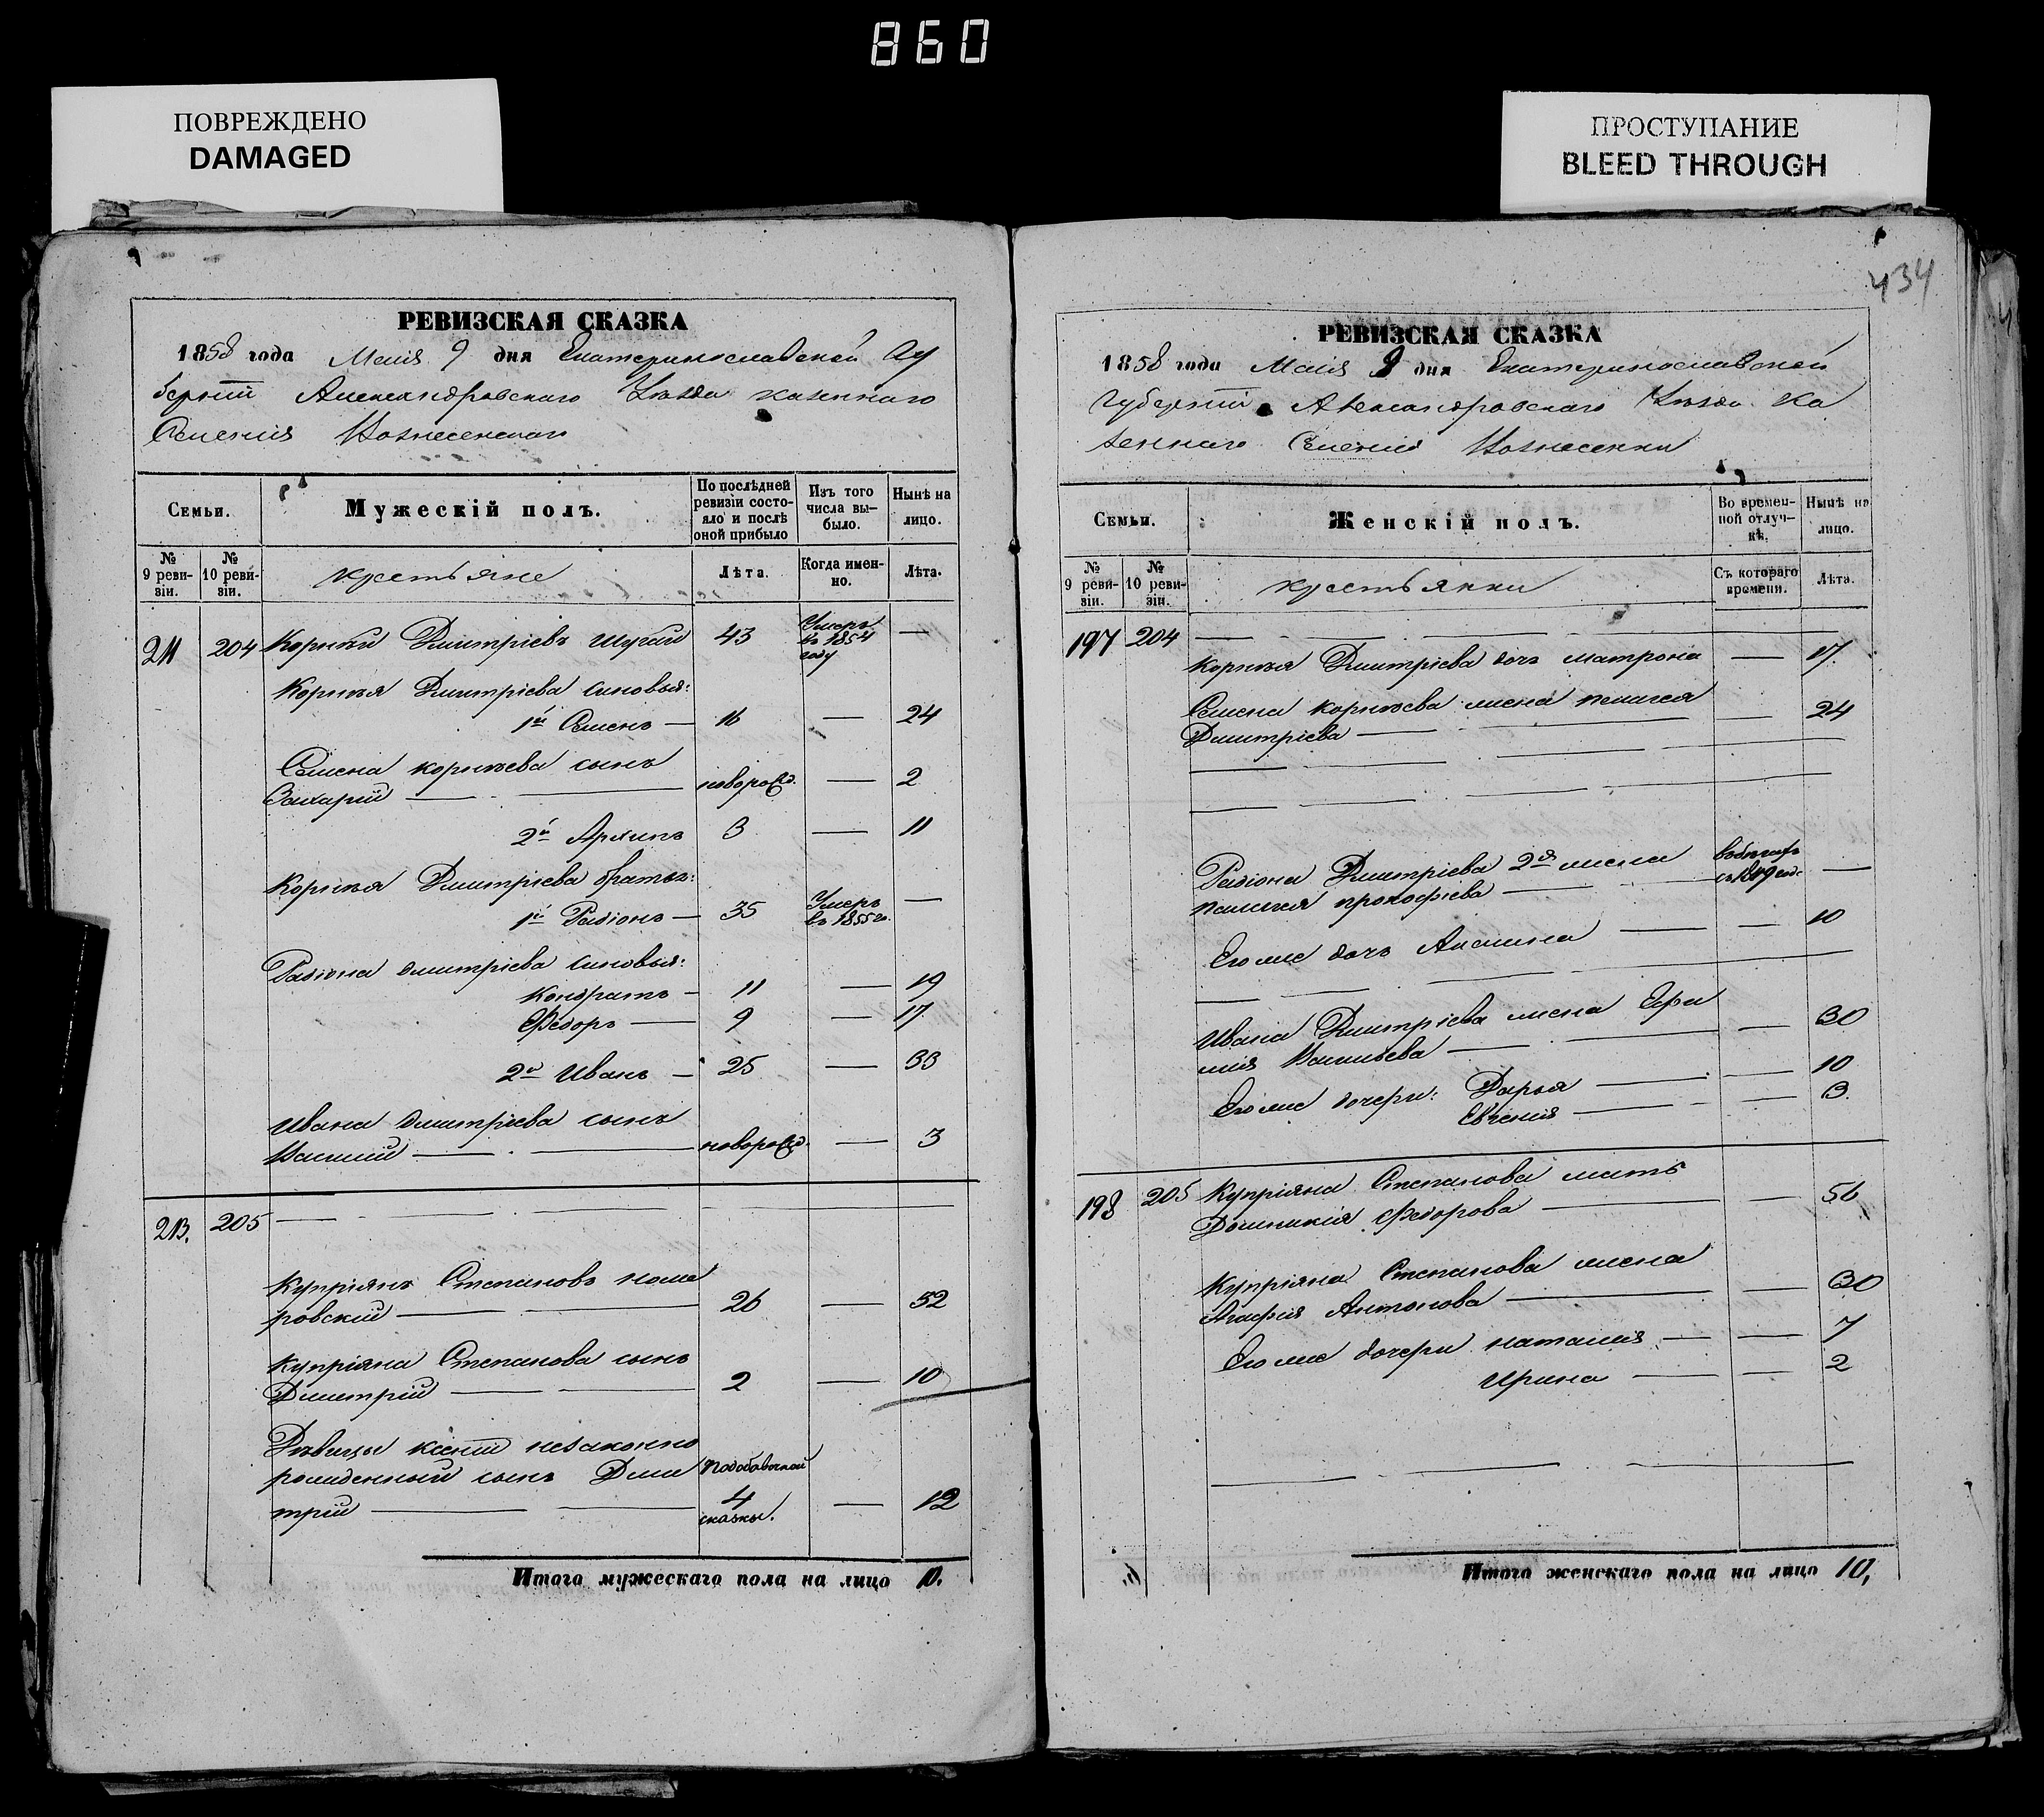 860
ПОВРЕЖДЕНО
DAMAGED
ПРОСТУПАНИЕ
BLEED THROUGH
РЕВИЗСКАЯ СКАЗКА
1858 года Маія 9 дня Екатеринославской Гу
берніи Александровскаго Уезда казеннаго
Селенія Вознесенскаго
Семьи.
Мужескій полъ.
По послѣдней ревизіи состояло и послѣ оной прибыло
Изъ того числа выбыло.
Нынѣ на лицо.
№ 9 ревизіи.
№ 10 ревизіи.
крестьяне
Лѣта.
Когда именно.
Лѣта.
211 204 Корнѣй Дмитріевъ Шугай 43 Умеръ въ 1854 году —
Корнѣя Дмитріева сыновья:
1й Семенъ — 16 — 24
Семена Корнѣева сынъ
Захарій — новорожд. — 2
2й Архипъ 3 — 11
Корнѣя Дмитріева братья:
1й Радіонъ — 35 Умеръ въ 1855 го. —
Радіона Дмитріева сыновья:
Кондратъ — 11 — 19
Федоръ — 9 — 17
2й Иванъ — 25 — 33
Ивана Дмитріева сынъ
Василій — новорожд. — 3
213. 205 —
Купріянъ Степановъ Кома
ровскій — 26 — 52
Купріяна Степанова сынъ
Дмитрій — 2 — 10
Дѣвицы Ксеніи незаконно
рожденный сынъ Дми
трій — по добавочной 4 сказкѣ. — 12
Итого мужескаго пола на лицо 10.
434
РЕВИЗСКАЯ СКАЗКА
1858 года Маія 9 дня Екатеринославской
Губерніи Александровскаго Уѣзда Ка
зеннаго Селенія Вознесенки
Семьи.
Женскій полъ.
Во временной отлучкѣ.
Нынѣ на лицо.
№ 9 ревизіи.
№ 10 ревизіи.
крестьянки
Съ котораго времени.
Лѣта.
197 204 —
Корнѣя Дмитріева дочь Матрона — 17.
Семена Корнѣева жена Пелагея
Дмитріева — — 24
Радіона Дмитріева 2я жена
Пелагея Прокофіева — въ бѣгахъ съ 1849 год. —
Его же дочь Акелина — — 10
Ивана Дмитріева жена Ефи
мія Васильева — — 30
Его же дочери: Дарья — — 10
Евгенія — — 3.
198 205 Купріяна Степанова мать
Домникія Федорова — — 56
Купріяна Степанова жена
Агафія Антонова — — 30
Его же дочери Наталія — — 7
Ирина — — 2
Итого женскаго пола на лицо 10,